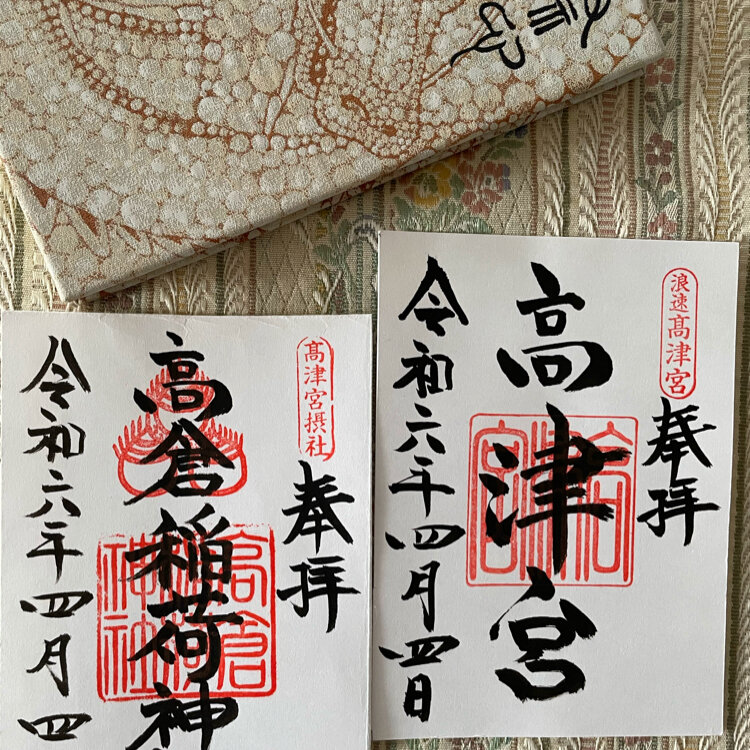 浪速高津宮
奉拝
高津宮
令和六年四月四日
髙津宮摂社
奉拝
高倉稲荷神
令和六年四月四